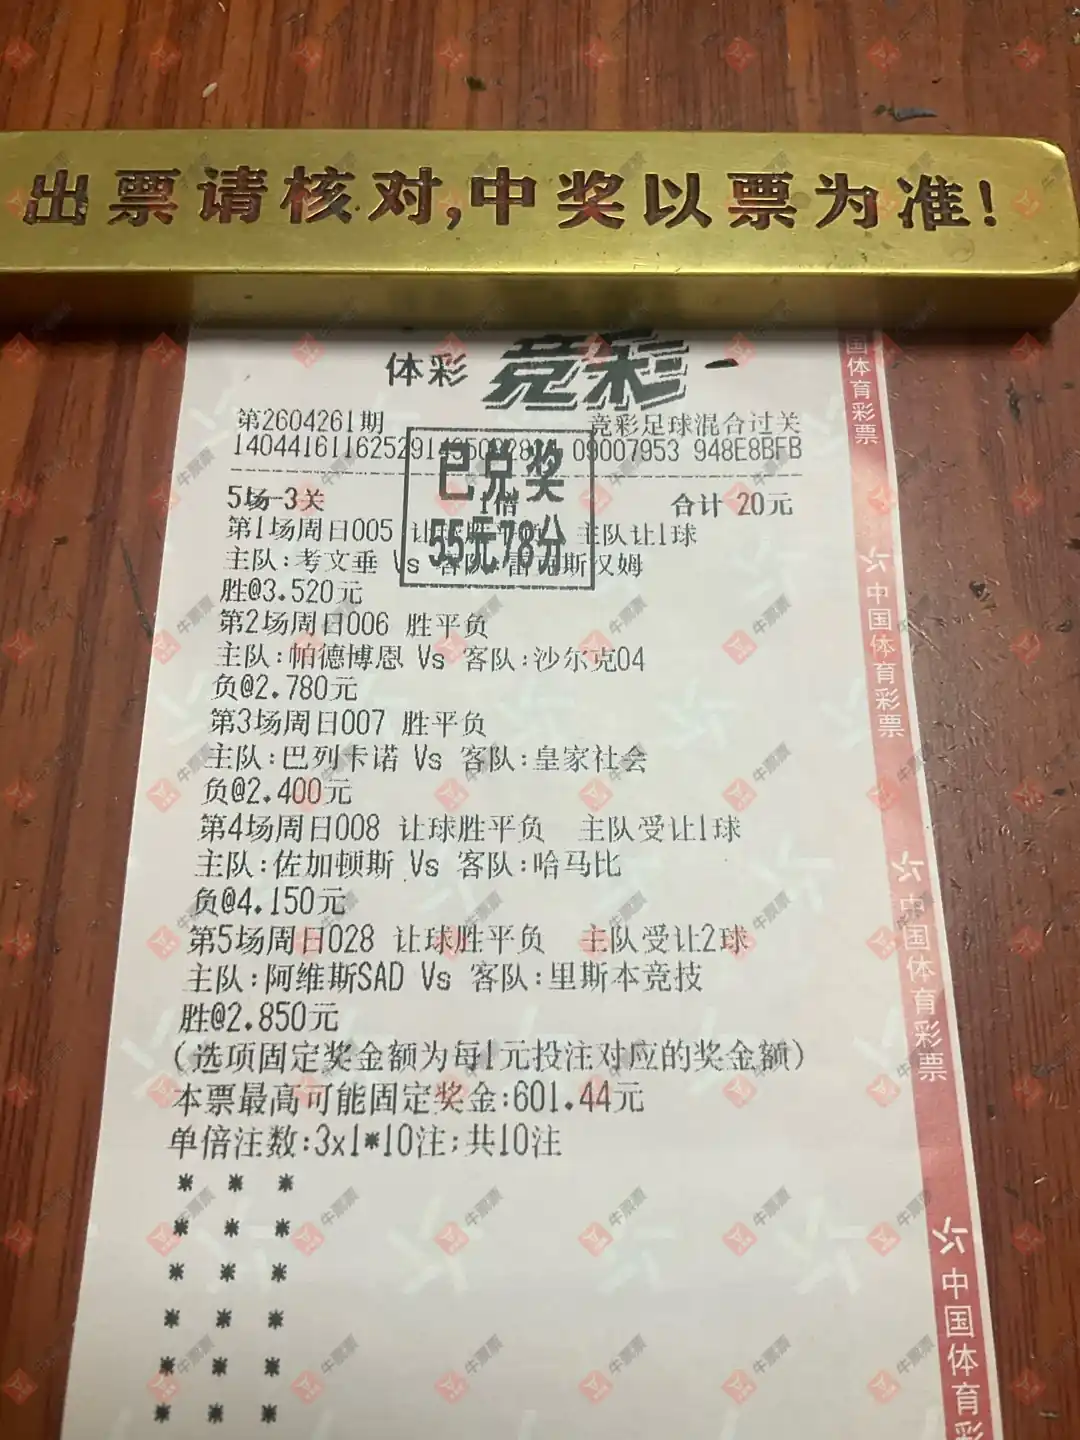 出票请核对,中奖以票为准!
体彩 竞彩
第2604261期 竞彩足球混合过关
09007953 948E8BFB
已兑奖
55元78分
5场-3关 1倍 合计 20元
第1场周日005 主队让1球
主队:考文垂 Vs
胜@3.520元
第2场周日006 胜平负
主队:帕德博恩 Vs 客队:沙尔克04
负@2.780元
第3场周日007 胜平负
主队:巴列卡诺 Vs 客队:皇家社会
负@2.400元
第4场周日008 让球胜平负 主队受让1球
主队:佐加顿斯 Vs 客队:哈马比
负@4.150元
第5场周日028 让球胜平负 主队受让2球
主队:阿维斯SAD Vs 客队:里斯本竞技
胜@2.850元
(选项固定奖金额为每1元投注对应的奖金额)
本票最高可能固定奖金:601.44元
单倍注数:3x1*10注;共10注
* * *
* * *
* * *
* * *
* * *
* * *
国体育彩票
中国体育彩票
中国体育彩票
中国体育彩
牛票票